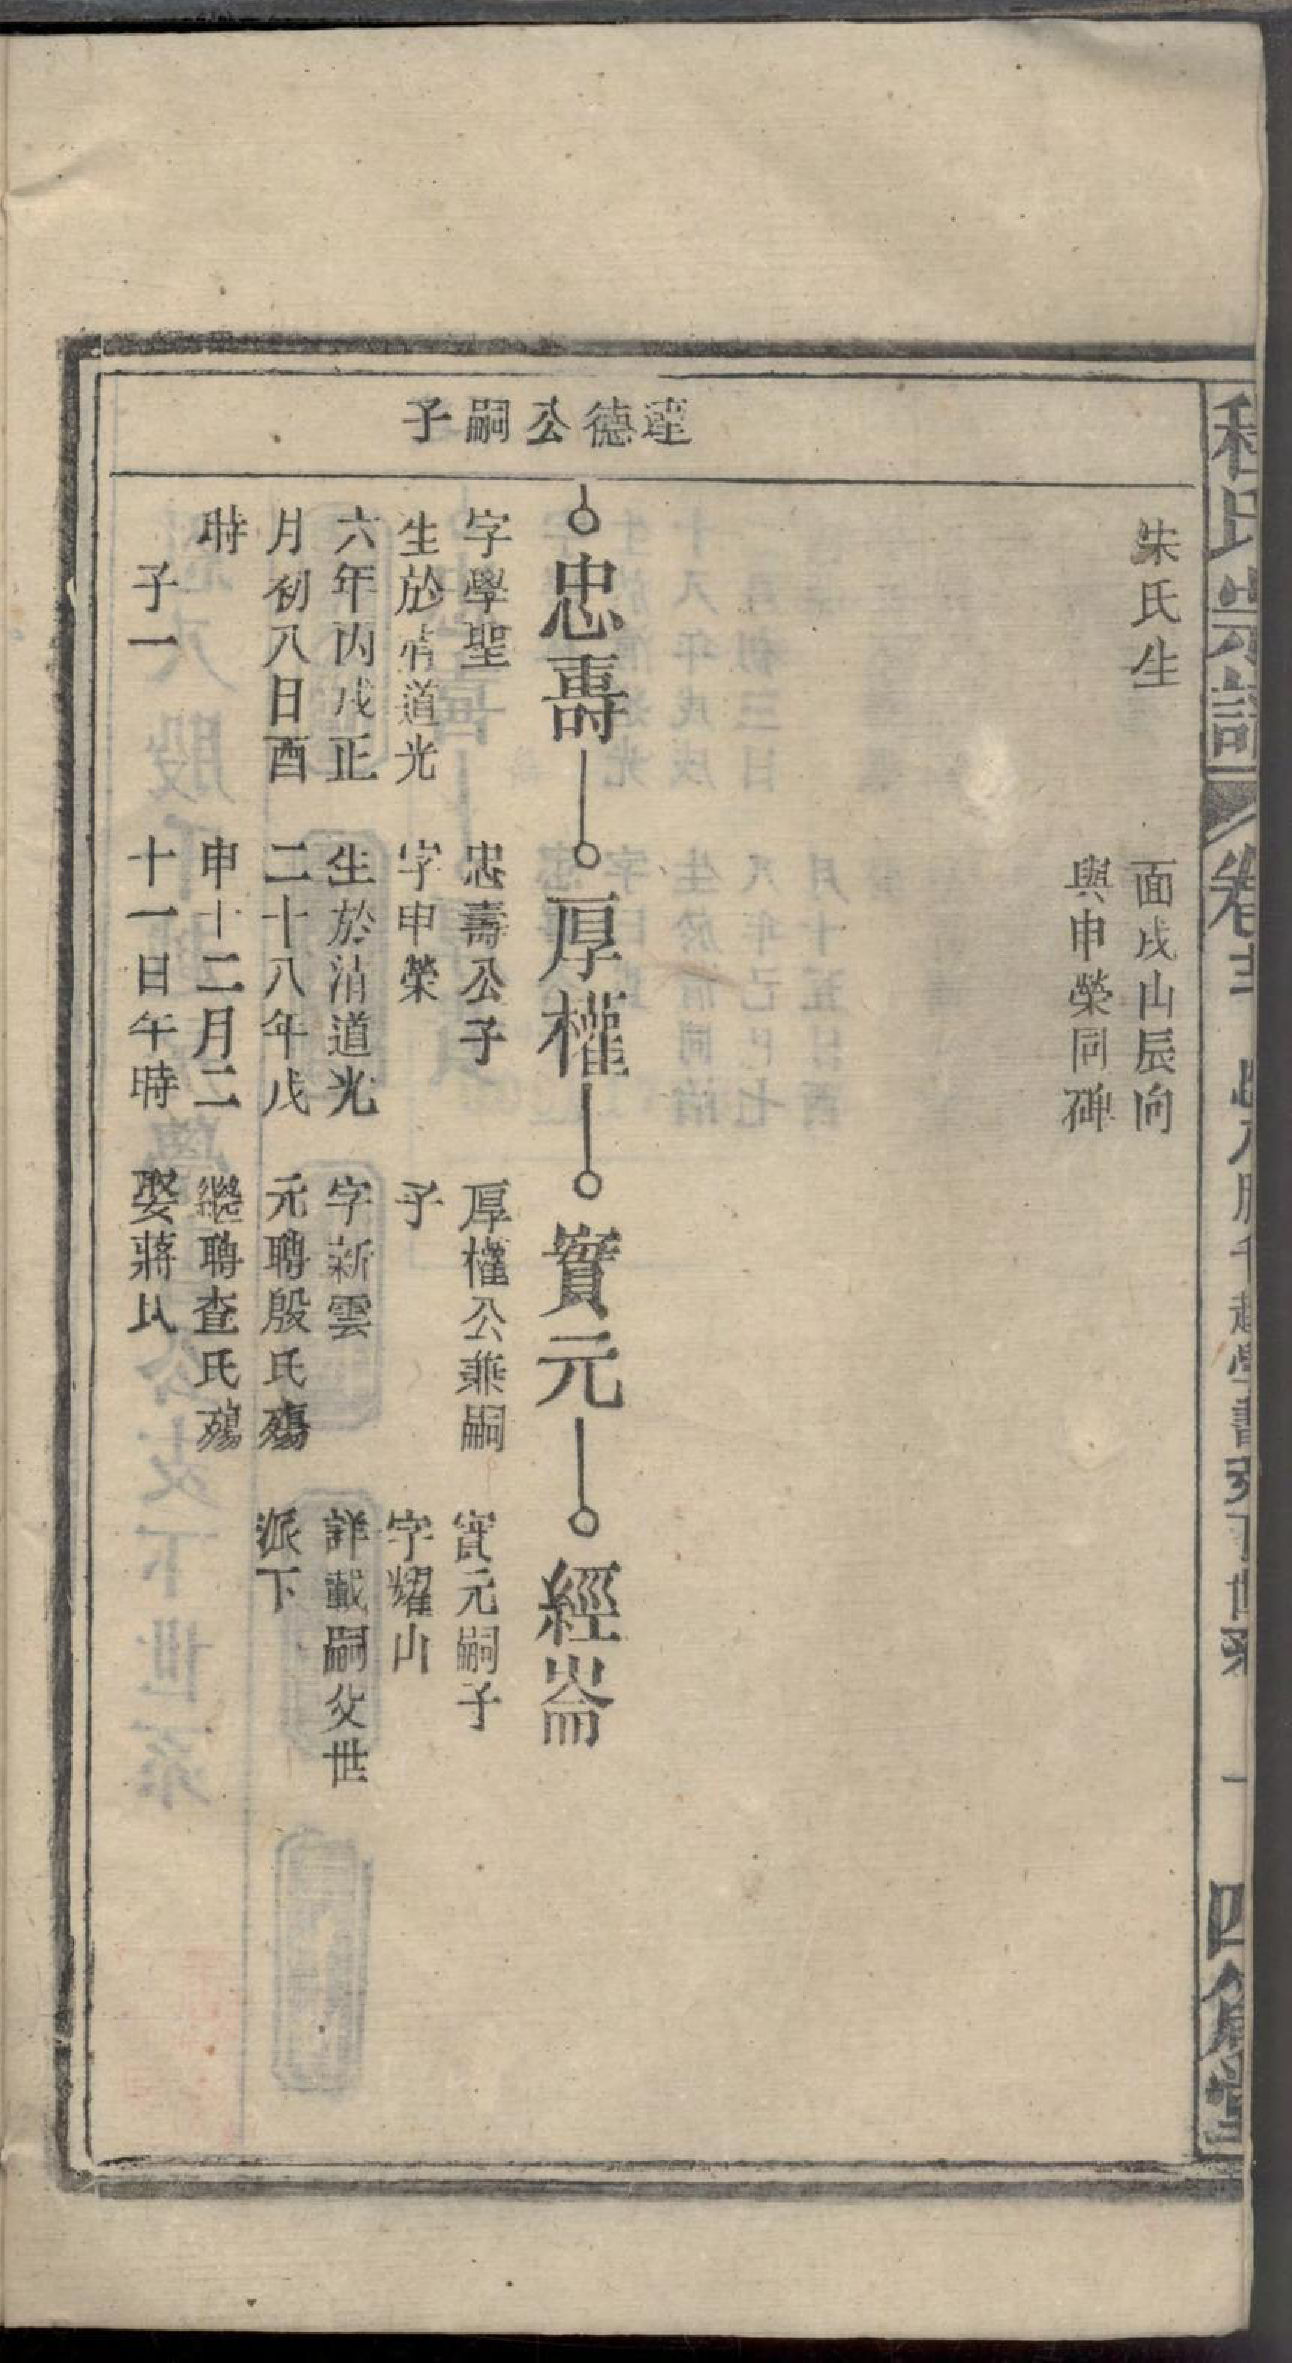 程氏宗譜
四箴堂
朱氏生
面戌山辰向
與申榮同碑
達德公嗣子
忠壽
厚權
實元
經崙
字學聖
生於淸道光
六年丙戌正
月初八日酉
時
子一
忠壽公子
字申榮
生於淸道光
二十八年戊
申十二月二
十一日午時
厚權公兼嗣
子
字新雲
元聘殷氏殤
繼聘查氏殤
娶蔣氏
實元嗣子
字耀山
詳載嗣父世
派下